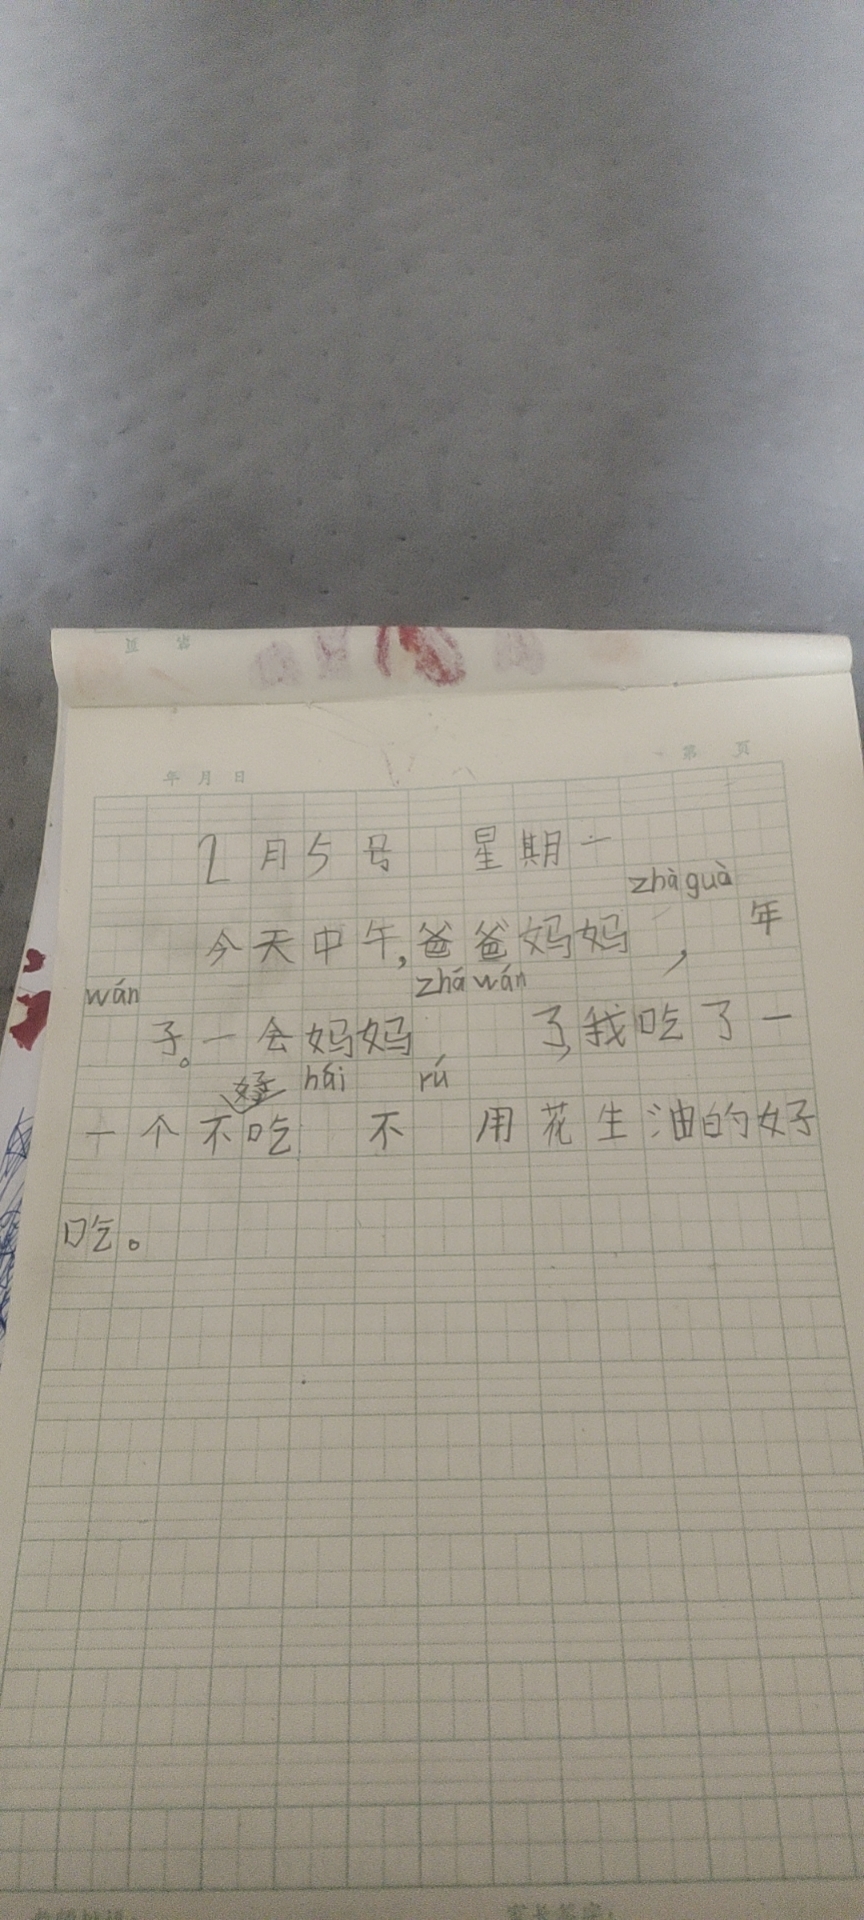 年 月 日
第 页
2月5号 星期一
zhà guà
今天中午,爸爸妈妈 , 年
wán zhá wán
子。一会妈妈 了,我吃了一
好 hái rú
一个不吃 不 用花生油的好
吃。